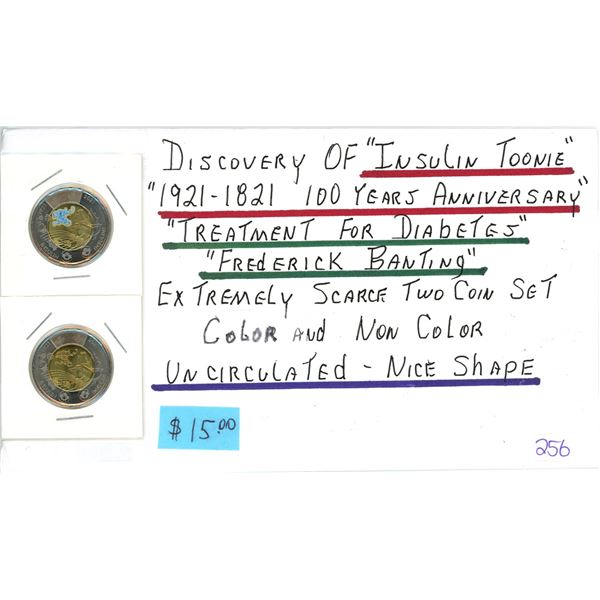 DISCOVERY OF "INSULIN TOONIE"
"1921-1821 100 YEARS ANNIVERSARY"
"TREATMENT FOR DIABETES"
"FREDERICK BANTING"
EXTREMELY SCARCE TWO COIN SET
COLOR AND NON COLOR
UNCIRCULATED - NICE SHAPE
$15.00
256